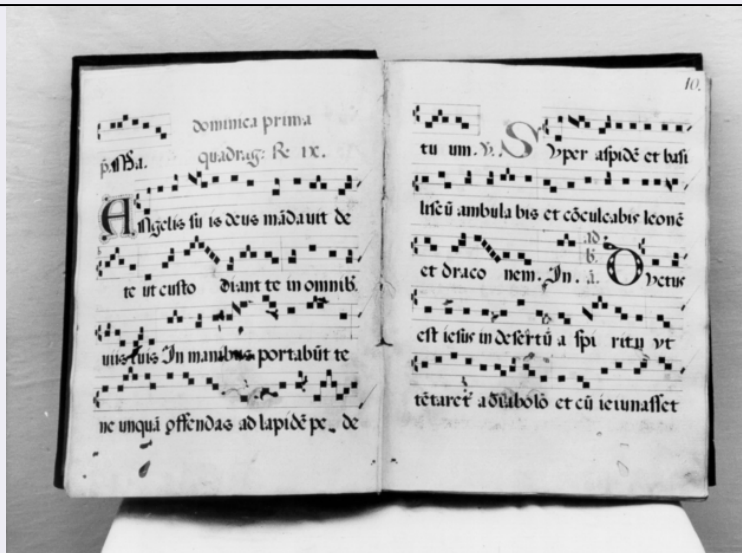 dominica prima
p̄. Ma. quadrag: R. ix.
Angelis su is deus mādauit de
te ut custo diant te in omnib.
uiis tuis In manibus portabūt te
ne unquā offendas ad lapidē pe de
10.
tu um. V. Super aspidē et basi
liscū ambula bis et cōculcabis leonē
et draco nem. In. ad b. a. Ductus
est iesus in desertū a spi ritu vt
tētaret a diabolo et cū ieiunasset